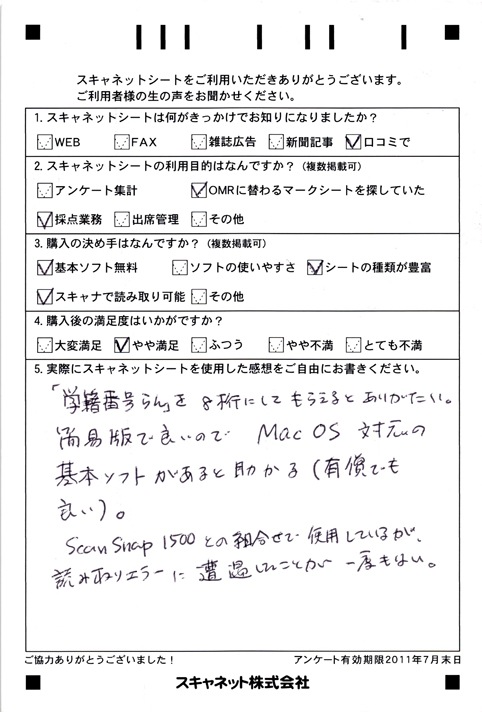 スキャネットシートをご利用いただきありがとうございます。
ご利用者様の生の声をお聞かせください。
1. スキャネットシートは何がきっかけでお知りになりましたか？
WEB FAX 雑誌広告 新聞記事 口コミで
2. スキャネットシートの利用目的はなんですか？（複数掲載可）
アンケート集計 OMRに替わるマークシートを探していた
採点業務 出席管理 その他
3. 購入の決め手はなんですか？（複数掲載可）
基本ソフト無料 ソフトの使いやすさ シートの種類が豊富
スキャナで読み取り可能 その他
4. 購入後の満足度はいかがですか？
大変満足 やや満足 ふつう やや不満 とても不満
5. 実際にスキャネットシートを使用した感想をご自由にお書きください。
「学籍番号らん」を 8桁にしてもらえると ありがたい。
簡易版で良いので Mac OS 対応の
基本ソフトがあると助かる（有償でも
良い）。
Scan Snap 1500 との組合せで 使用しているが、
読み取りエラーに 遭遇したことが 一度もない。
ご協力ありがとうございました！
アンケート有効期限2011年7月末日
スキャネット株式会社